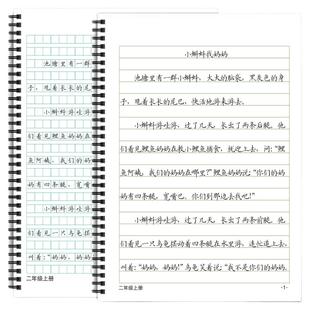 池塘里有一群
子，甩着长长的尾
小蝌蚪游哇游
们看见鲤鱼妈妈在
鱼阿姨，我们的妈
妈有四条腿，宽嘴
小蝌蚪游哇游
们看见一只乌龟摆
着："妈妈，妈妈
二年级上册
小蝌蚪找妈妈
池塘里有一群小蝌蚪，大大的脑袋，黑灰色的身
子，甩着长长的尾巴，快活地游来游去。
小蝌蚪游哇游，过了几天，长出了两条后腿。他
们看见鲤鱼妈妈在教小鲤鱼捕食，就迎上去，问："鲤
鱼阿姨，我们的妈妈在哪里?"鲤鱼妈妈说："你们的妈
妈有四条腿，宽嘴巴。你们到那边去找吧!"
小蝌蚪游哇游，过了几天，长出了两条前腿。他
们看见一只乌龟摆动着四条腿在水里游，连忙追上去，
叫着："妈妈，妈妈!"乌龟笑着说："我不是你们的妈妈。
二年级上册
-1-